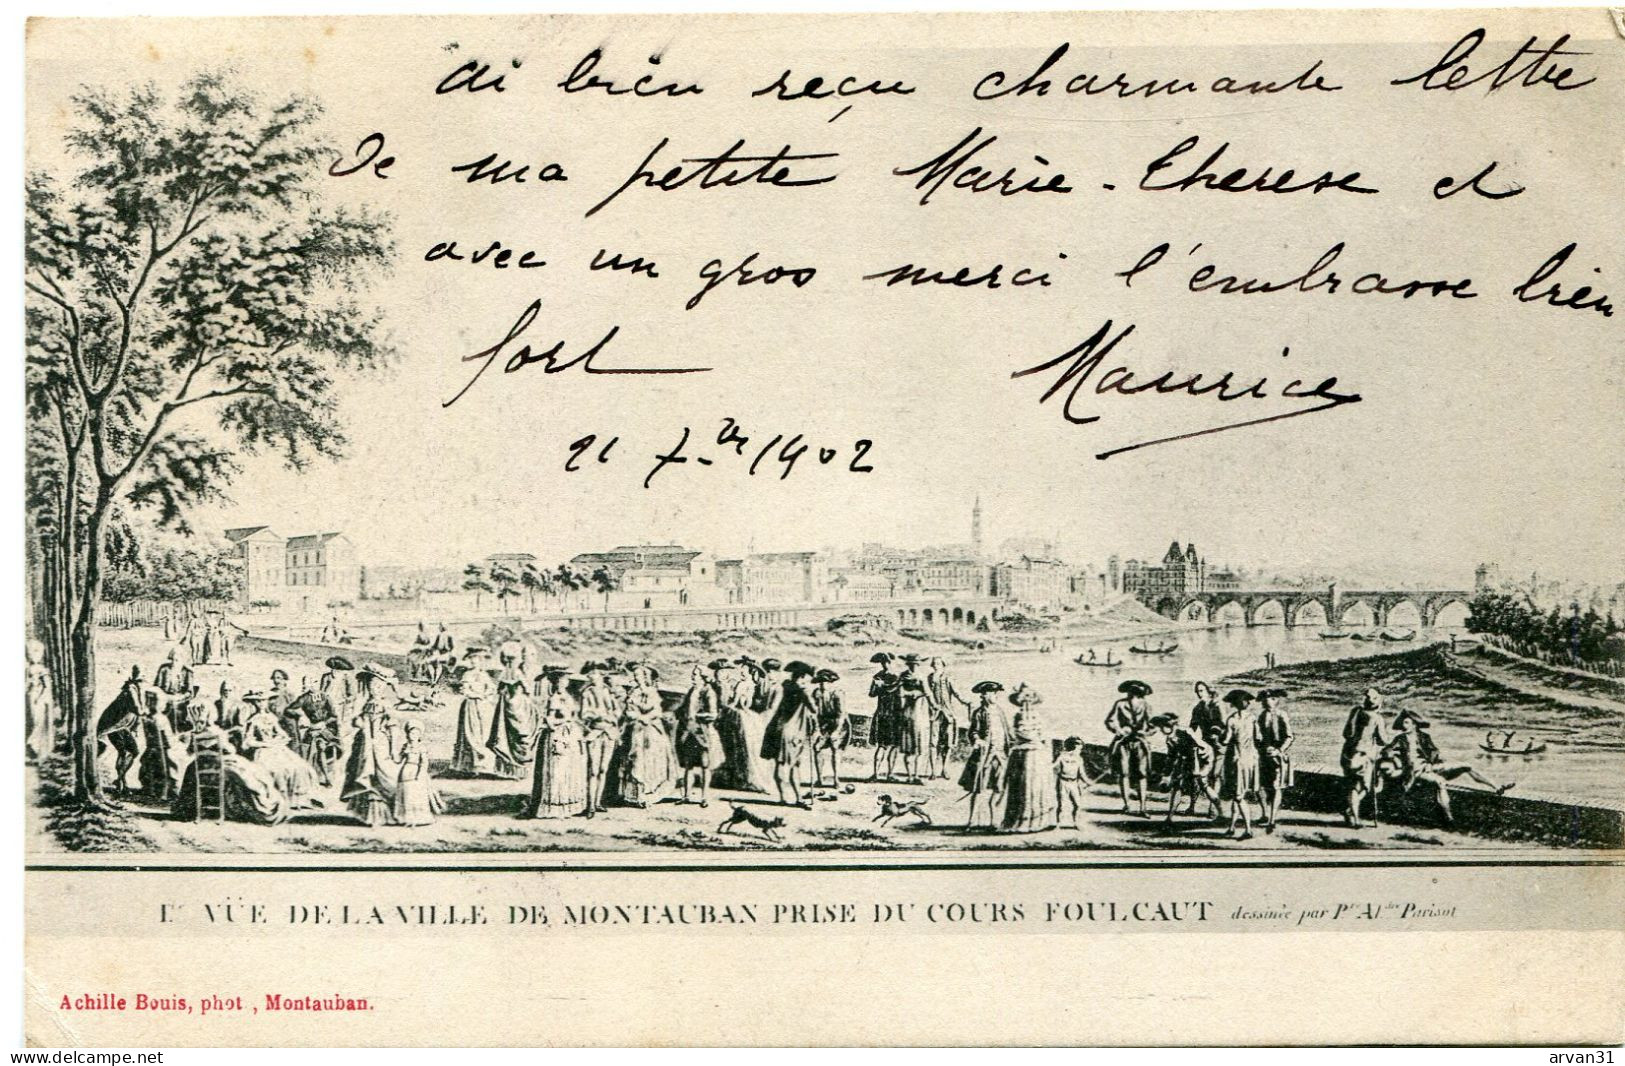 ai bien reçu charmante lettre
de ma petite Marie-Therese et
avec un gros merci l'embrasse bien
fort Maurice
21 7bre 1902
Ire VÜE DE LA VILLE DE MONTAUBAN PRISE DU COURS FOULCAUT dessinée par Pre Aldre Parisot
Achille Bouis, phot, Montauban.
www.delcampe.net arvan31